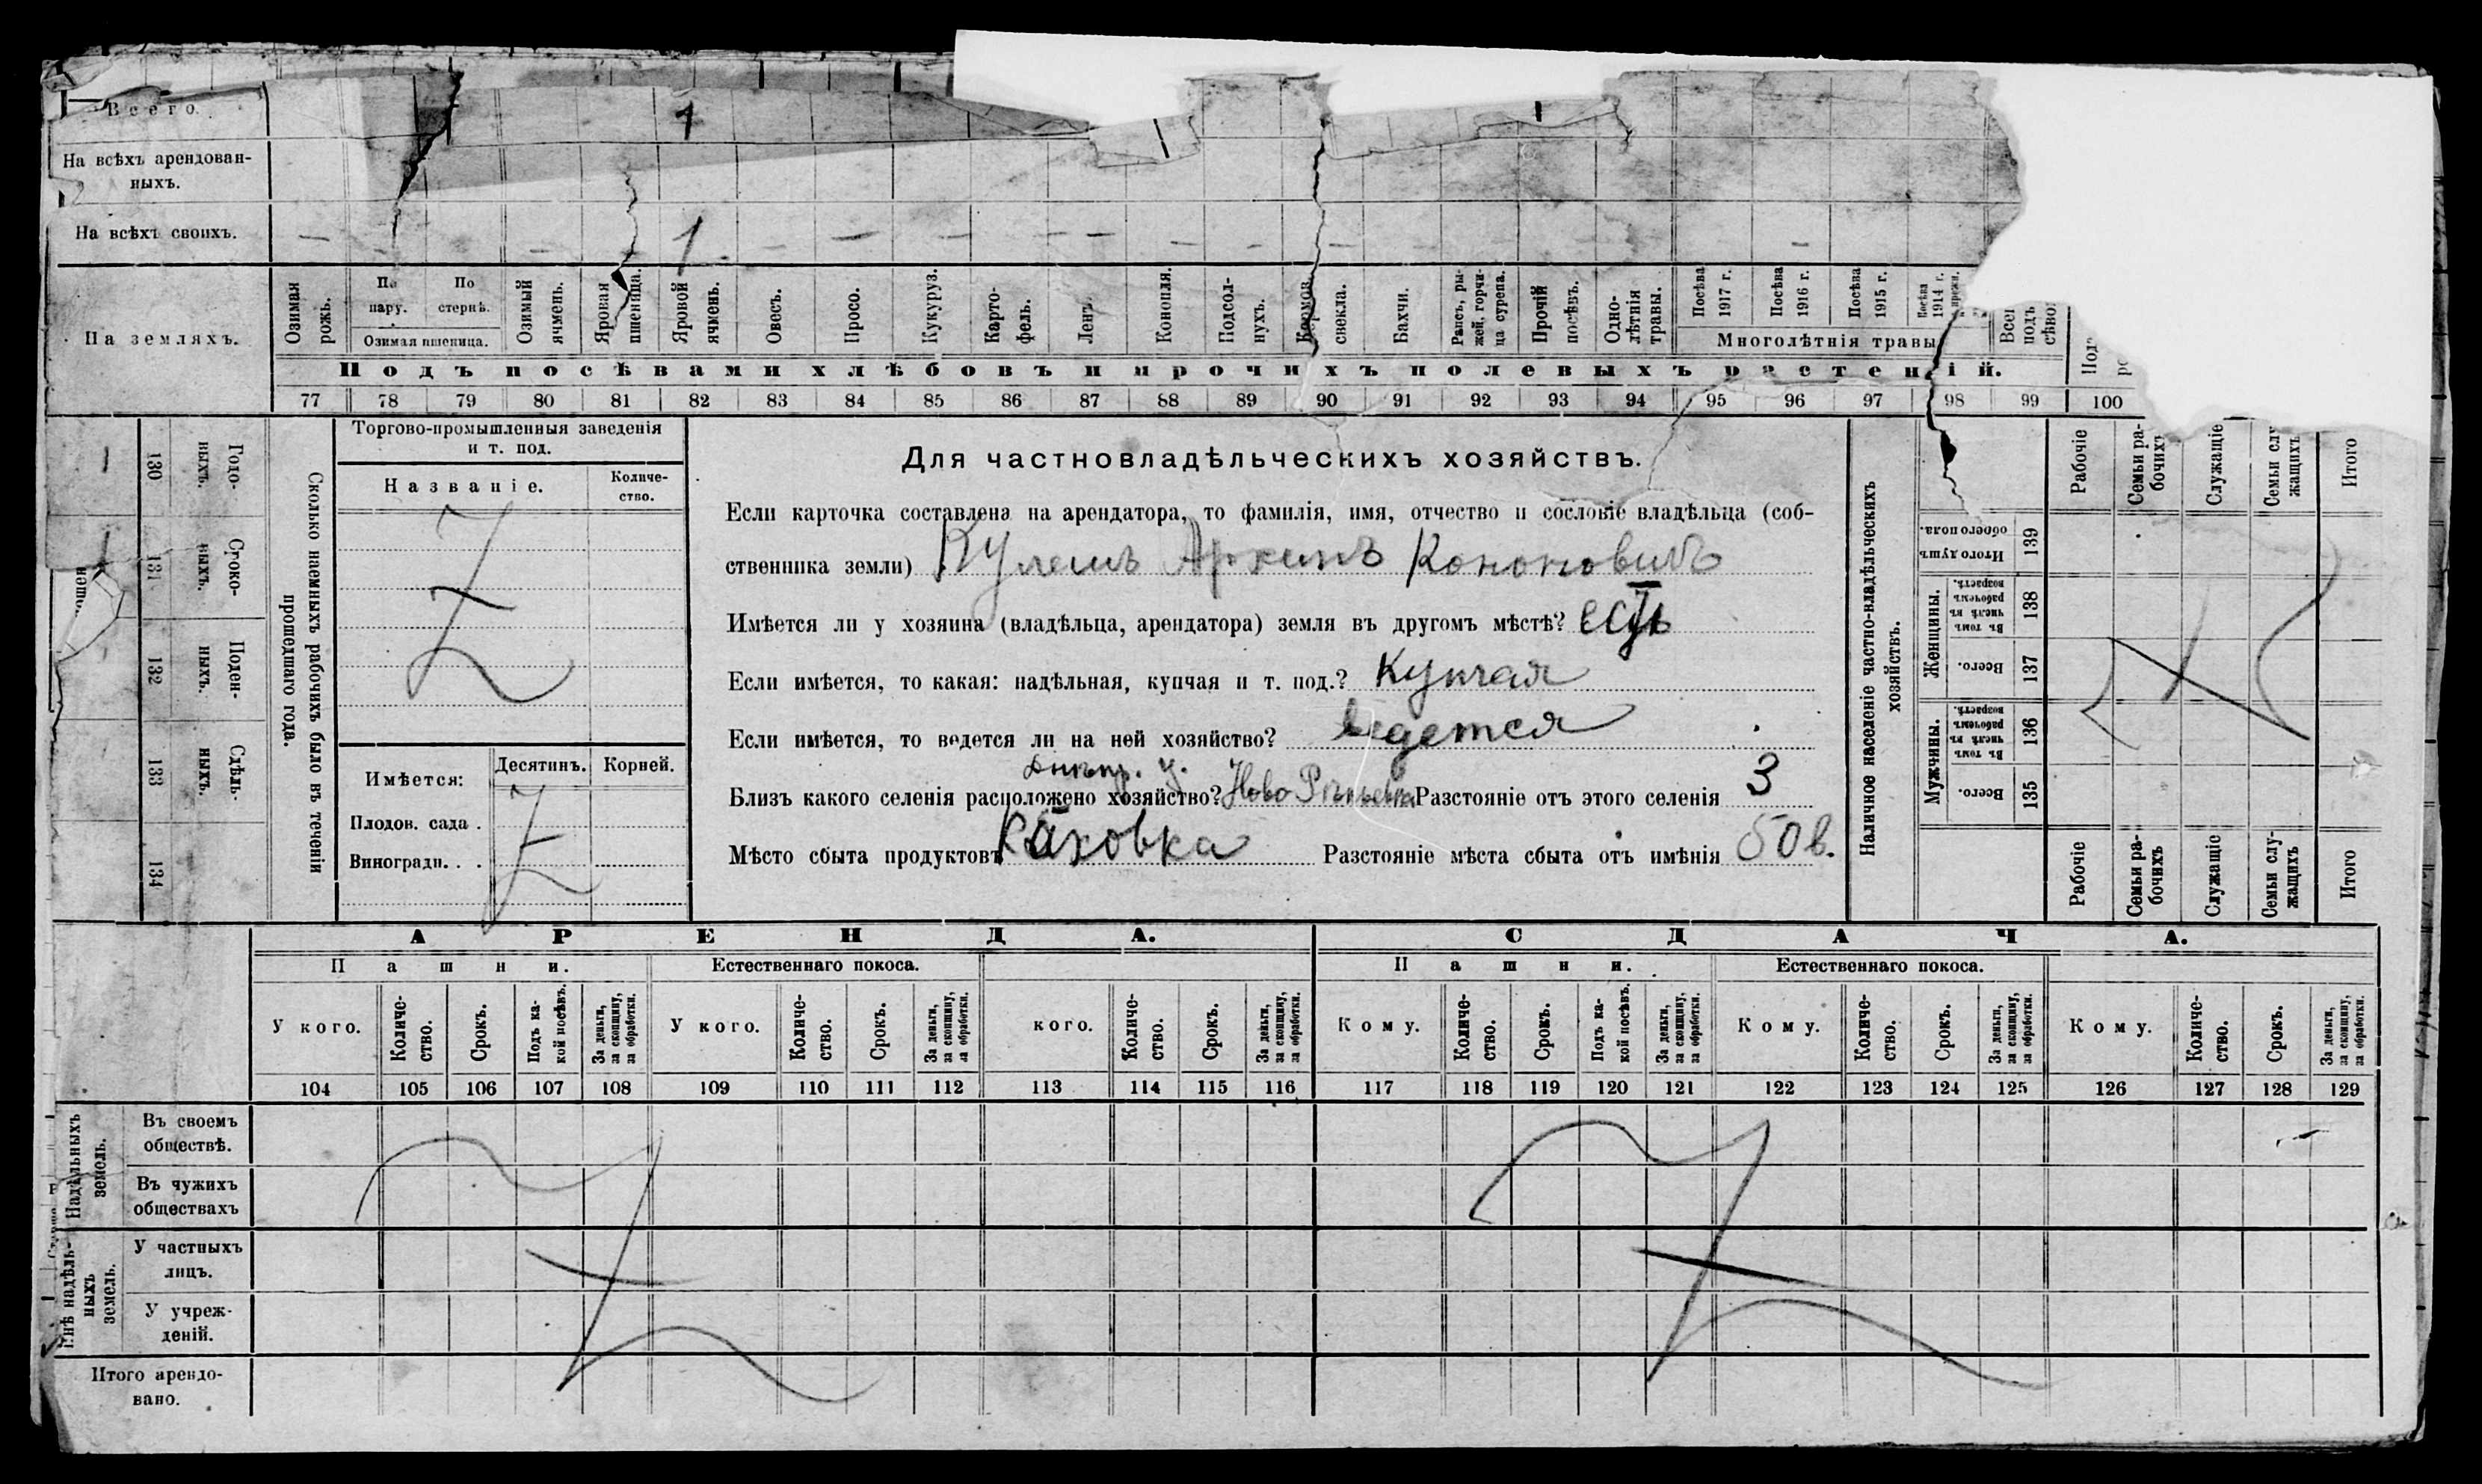 Всего. 1
На всѣхъ арендован-
ныхъ.
На всѣхъ своихъ. — — 1 — — — — — — — — — —
На земляхъ.
Озимая рожь.
По пару.
По стернѣ.
Озимая пшеница.
Озимый ячмень.
Яровая пшеница.
Яровой ячмень.
Овесъ.
Просо.
Кукуруз.
Карто-
фель.
Ленъ.
Конопля.
Подсол-
нухъ.
Кормов. свекла.
Бахчи.
Рапсъ, ры-
жей, горчи-
ца сурепа.
Прочій посѣвъ.
Одно-
лѣтнія
травы.
Посѣва 1917 г.
Посѣва 1916 г.
Посѣва 1915 г.
Посѣва 1914 г.
Многолѣтнія травы
Подъ посѣвами хлѣбовъ и прочихъ полевыхъ растеній.
77 78 79 80 81 82 83 84 85 86 87 88 89 90 91 92 93 94 95 96 97 98 99 100
Годо-
ныхъ.
130
Сроко-
ныхъ.
131
Поден-
ныхъ.
132
Сдѣль-
ныхъ.
133
134
Сколько наемныхъ рабочихъ было въ теченіи
прошедшаго года.
Торгово-промышленныя заведенія
и т. под.
Названіе.
Количе-
ство.
Имѣется:
Десятинъ.
Корней.
Плодов. сада .
Виноградн. . .
Для частновладѣльческихъ хозяйствъ.
Если карточка составлена на арендатора, то фамилія, имя, отчество и сословіе владѣльца (соб-
ственника земли) Кулешъ Архипъ Кононовичъ
Имѣется ли у хозяина (владѣльца, арендатора) земля въ другомъ мѣстѣ? есть
Если имѣется, то какая: надѣльная, купчая и т. под.? Купчая
Если имѣется, то ведется ли на ней хозяйство? ведется
Днѣпр. у.
Близъ какого селенія расположено хозяйство? Ново Разстояніе отъ этого селенія 3
Мѣсто сбыта продуктовъ Каховка Разстояніе мѣста сбыта отъ имѣнія 50 в.
Наличное населеніе частно-владѣльческихъ
хозяйствъ.
Рабочіе
Семьи ра-
бочихъ
Служащіе
Семьи слу-
жащихъ
Итого
Итого душъ
обоего пола.
139
Женщины.
Въ томъ
числѣ въ
рабочемъ
возрастѣ.
138
Всего.
137
Мужчины.
Въ томъ
числѣ въ
рабочемъ
возрастѣ.
136
Всего.
135
Рабочіе
Семьи ра-
бочихъ
Служащіе
Семьи слу-
жащихъ
Итого
АРЕНДА. СДАЧА.
Пашни. Естественнаго покоса. Пашни. Естественнаго покоса.
У кого.
Количе-
ство.
Срокъ.
Подъ ка-
кой посѣвъ.
За деньги,
за скопщину,
за обработки.
У кого.
Количе-
ство.
Срокъ.
За деньги,
за скопщину,
за обработки.
кого.
Количе-
ство.
Срокъ.
За деньги,
за скопщину,
за обработки.
Кому.
Количе-
ство.
Срокъ.
Подъ ка-
кой посѣвъ.
За деньги,
за скопщину,
за обработки.
Кому.
Количе-
ство.
Срокъ.
За деньги,
за скопщину,
за обработки.
Кому.
Количе-
ство.
Срокъ.
За деньги,
за скопщину,
за обработки.
104 105 106 107 108 109 110 111 112 113 114 115 116 117 118 119 120 121 122 123 124 125 126 127 128 129
Надѣльныхъ
земель.
Въ своемъ
обществѣ.
Въ чужихъ
обществахъ
Внѣ надѣль-
ныхъ
земель.
У частныхъ
лицъ.
У учреж-
деній.
Итого арендо-
вано.